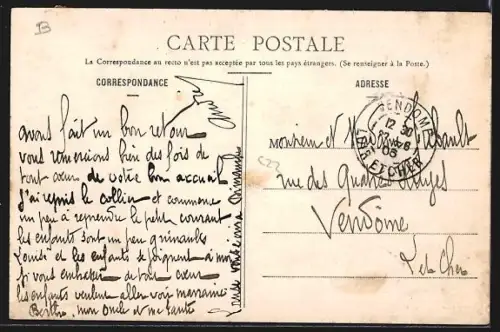 B
CARTE POSTALE
La Correspondance au recto n'est pas acceptée par tous les pays étrangers. (Se renseigner à la Poste.)
CORRESPONDANCE
avons fait un bon retour
vous remercions bien des fois de
tout cœur de votre bon accueil
J'ai repris le collier et commence
un peu à reprendre le petit courant
les enfants sont un peu grincants
Louise et les enfants se joignent à moi
pr vous embrasser de tout cœur
les enfants veulent aller voir marraine
Berthe, mon Oncle et ma tante
ADRESSE
VENDOME
12 30
06
LOIR ET CHER
Monsieur et M
rue des Quatre Huyes
Vendôme
L et Cher